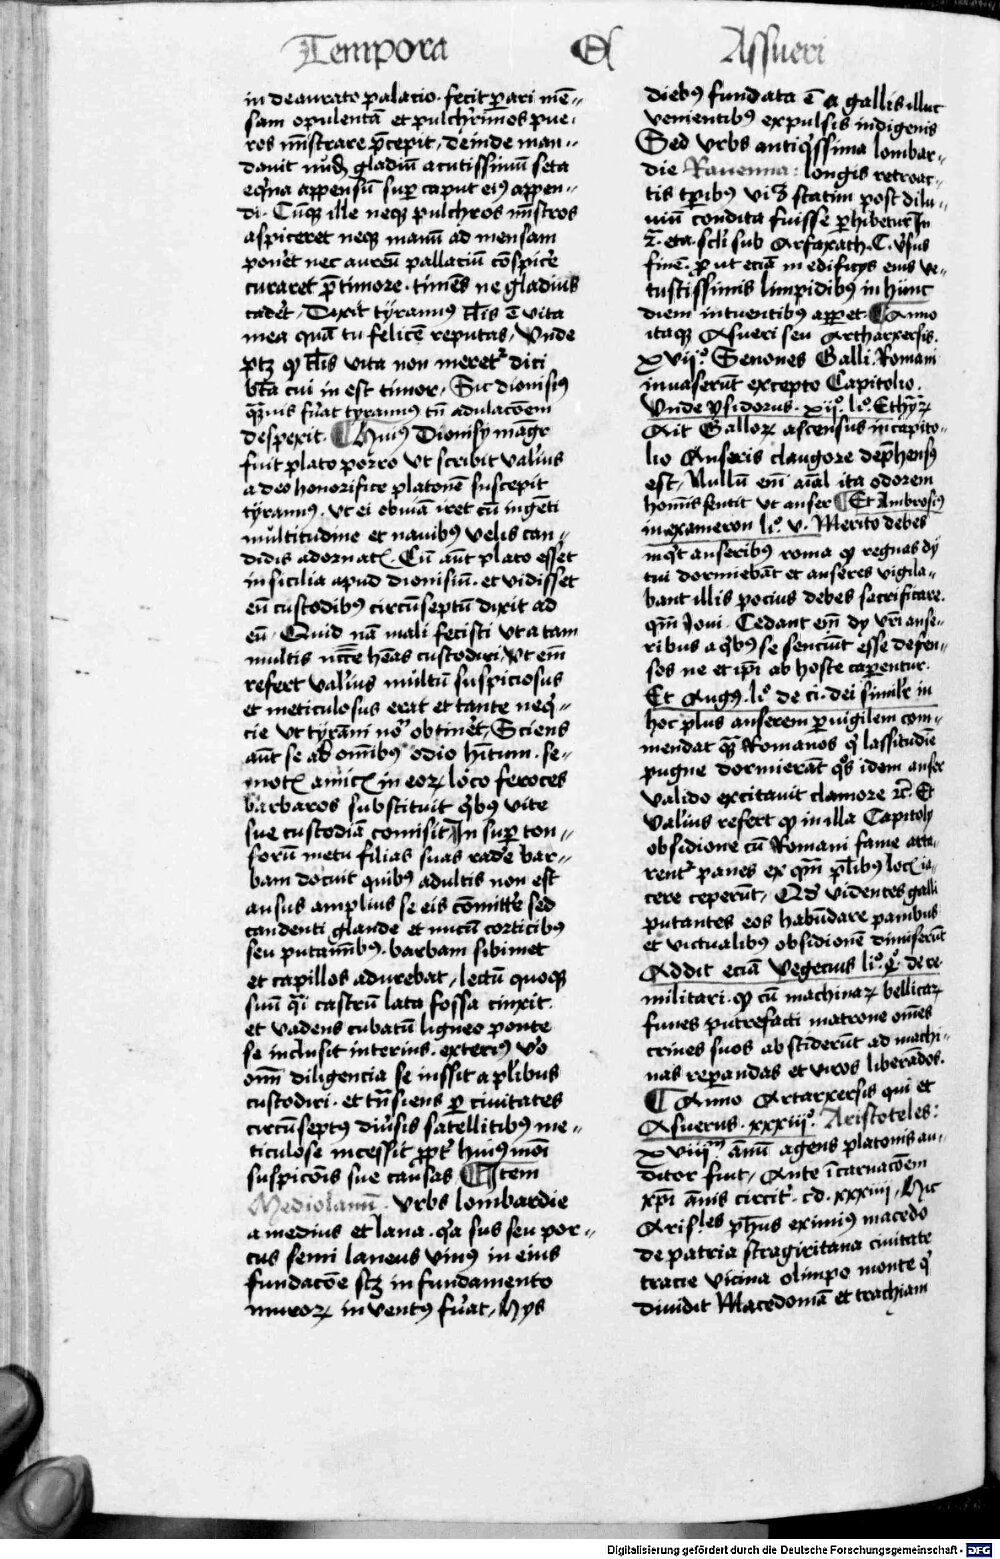 Tempora Assueri
in deaurato palacio. fecit p̄ari mē⸗
sam opulentā et pulchrimos pue⸗
ros mīstrare p̄cepit, deinde man⸗
dauit nudū gladiū acutissimū seta
eq̄na appensū sup̄ caput eiꝰ appen⸗
di. Cūqꝫ ille neqꝫ pulchros mīstros
aspiceret neqꝫ manū ad mensam
pon̄et nec aureū pallaciū cōspic̄e
curaret p̄ timore. timēs ne gladius
cad̄et, Dixit tÿrannꝰ Tl̄is ē vita
mea quā tu felicē reputas, Vnde
ptꝫ qꝫ tl̄is vita non meret᷑ dici
btā cui in est timor, Sic dionisiꝰ
qꝫuis fūat tyrannꝰ tn̄ adulacōem
despexit. Huiꝰ Dionisÿ māgr
fuit plato porro vt scribit val̄ius
a deo honorifice platonē suscepit
tÿrannꝰ. vt ei obuiā iret cū ingēti
multitudine et nauibꝰ velis can⸗
didis adornatꝭ. Cū aūt plato ess̄et
in sicilia apud dionisiū. et vidisset
eū custodibꝰ circūseptū dixit ad
eū, Quid nā mali fecisti vt a tam
multis nc̄c̄e hēas custodiri, vt em̄
refert val̄ius multū suspiciosus
et meticulosus erat et tante neq̄⸗
cie vt tÿrāni nōē obtin̄et, Sciens
aūt se ab om̄ibꝰ odio hītum. se⸗
motꝭ amicꝭ in eoꝝ loco feroces
barbaros substituit q̄bꝰ vite
sue custodiā comisit, In sup̄ ton⸗
sorū metu filias suas rad̄e bar⸗
bam docuit quibꝰ adultis non est
ausus amplius se eis cōmitt̄e sed
candenti glande et nucū corticibꝰ
seu putamībꝰ. barbam sibimet
et capillos adurebat, lectū quoqꝫ
suū q̄i castrū lata fossa cinxit.
et vadens cubatū ligneo ponte
se inclusit interius. exteriꝰ v̄o
om̄i diligencia se iussit a pl̄ibus
custodiri. et trn̄siens p̄ ciuitates
circūseptꝰ diūsis satellitibꝰ me⸗
ticulose incessit ppt̄ huiꝰmōi
suspicōis sue causas Item
Mediolanū. Vrbs lombardie
a medius et lana. q̄a sus seu por⸗
cus semi laneus viuꝰ in eius
fundacōe scꝫ in fundamento
muroꝝ in ventꝰ fūat, Hys
diebꝰ fundata ē a gallis illuc
venientibꝰ expulsis indigenis
Sed vrbs antiq̄ssima lombar⸗
die Rauenna: longis retroac⸗
tis tp̄ibꝰ vidꝫ statim post dilu⸗
uiū condita fuisse p̄hibetur In
eta. scl̄i sub Arfaxath. C. v̄sus
finē. p̄ ut eciā in edificÿs eius ve⸗
tustissimis limpidibꝰ in hunc
diem intuentibꝰ apparet. Anno
itaqꝫ Asueri seu Artharxersis.
xvijº. Senones Galli. Romani
inuaserūt excepto Capitolio.
Vnde ysidorus. xijº. liº. Ethỹꝝ
Ait Galloꝝ ascensus in capito⸗
lio Anseris clangore dep̄hensꝰ
est, Nullū em̄ aīal ita odorem
hom̄is sentit vt anser Et Ambrosiꝰ
in exameron liº. v. Merito debes
inq̄t anseribꝰ roma qꝫ regnas dÿ
tui dormiebāt et anseres vigila⸗
bant illis pocius debes sacrificare.
qm̄ Joui. Cedant em̄ dy vr̄i anse⸗
ribus a q̄bꝰ se senciūt esse defen⸗
sos ne et ip̄i ab hoste caperentur.
Et Augꝰ. liº de ci. dei simil̄r in
hoc plus anserem p̄uigilem com⸗
mendat qꝫ Romanos q̄ lassitudīe
pugne dormierāt q̄s idem anser
valido excitauit clamore ꝛc̄. Et
Val̄ius refert qꝫ in illa Capitolÿ
obsidione cū Romani fame arta⸗
rent᷑ panes ex qm̄ pl̄ibus locꝭ ia⸗
cere ceperūt, Qd̄ videntes galli
putantes eos habūdare panibus
et victualibꝰ obsidionē dimiserūt
Addit eciā Vegecius liº. qº. de re
militari. qꝫ cū machinaꝝ bellicaꝝ
funes putrefacti matrone om̄es
crines suos absciderūt ad machi⸗
nas reparandas et viros liberādos.
Anno Artarxersis qui et
Asuerus. xxxiijº. Aristoteles:
xviijᵐ annū agens platonis au⸗
ditor fuit, Ante incarnacōem
xp̄i ānis circit̄. cd. xxxiiij, Hic
Aris.les ph̄us eximiꝰ macedo
de patria stragiritana ciuitate
tracie vicina olimpo monte q̄
diuidit Macedoniā et trachiam
Digitalisierung gefördert durch die Deutsche Forschungsgemeinschaft - DFG